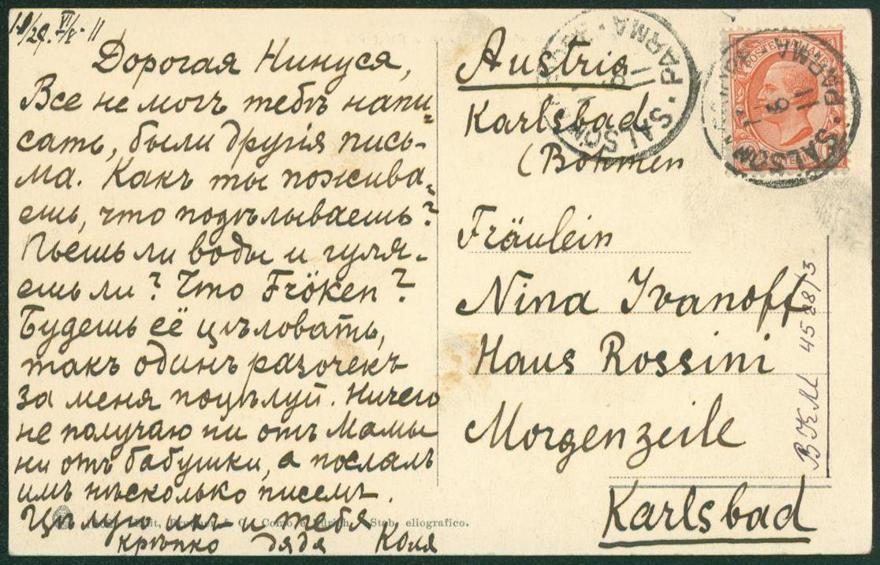 Дорогая Нинуся,
Все не могъ тебѣ напи-
сать, были другія пись-
ма. Какъ ты пожива-
ешь, что подѣлываешь?
Пьешь ли воды и гуля-
ешь ли? Что Fröken?
Будешь её цѣловать,
такъ одинъ разочекъ
за меня поцѣлуй. Ничего
не получаю ни отъ Мамы
ни отъ бабушки, а послалъ
имъ нѣсколько писемъ.
Цѣлую ихъ и тебя
крѣпко дядя Коля
Como
Stab. eliografico.
Austria
Karlsbad
(Böhmen
Fräulein
Nina Ivanoff
Haus Rossini
Morgenzeile
Karlsbad
PARMA
SALSOM
PARMA
4588/3